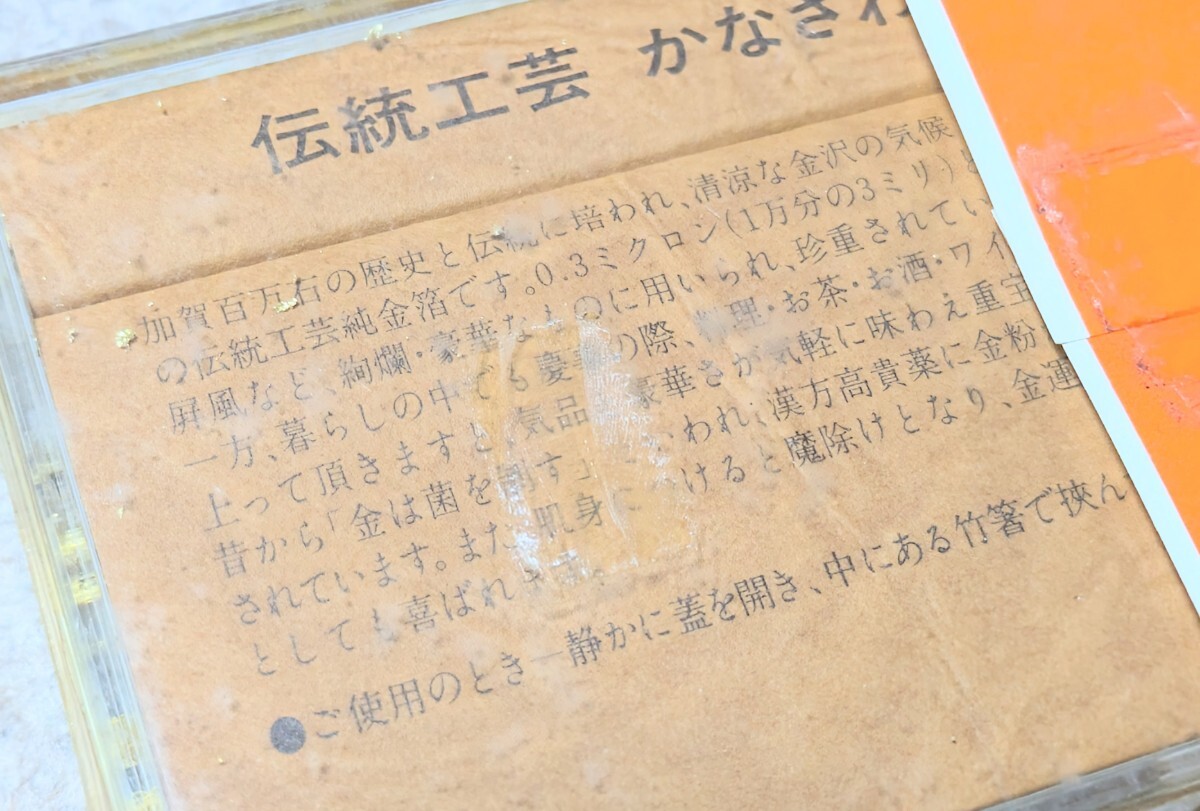 伝統工芸 かなざわ
加賀百万石の歴史と伝統に培われ、清涼な金沢の気候
の伝統工芸純金箔です。0.3ミクロン(1万分の3ミリ)と
屏風など、絢爛・豪華なものに用いられ、珍重されてい
一方、暮らしの中でも慶事の際、料理・お茶・お酒・ワイ
上って頂きますと 気品 豪華さが気軽に味わえ重宝
昔から「金は菌を制す」 われ、漢方高貴薬に金粉
されています。また 肌身に けると魔除けとなり、金運
としても喜ばれます。
●ご使用のとき—静かに蓋を開き、中にある竹箸で挾ん